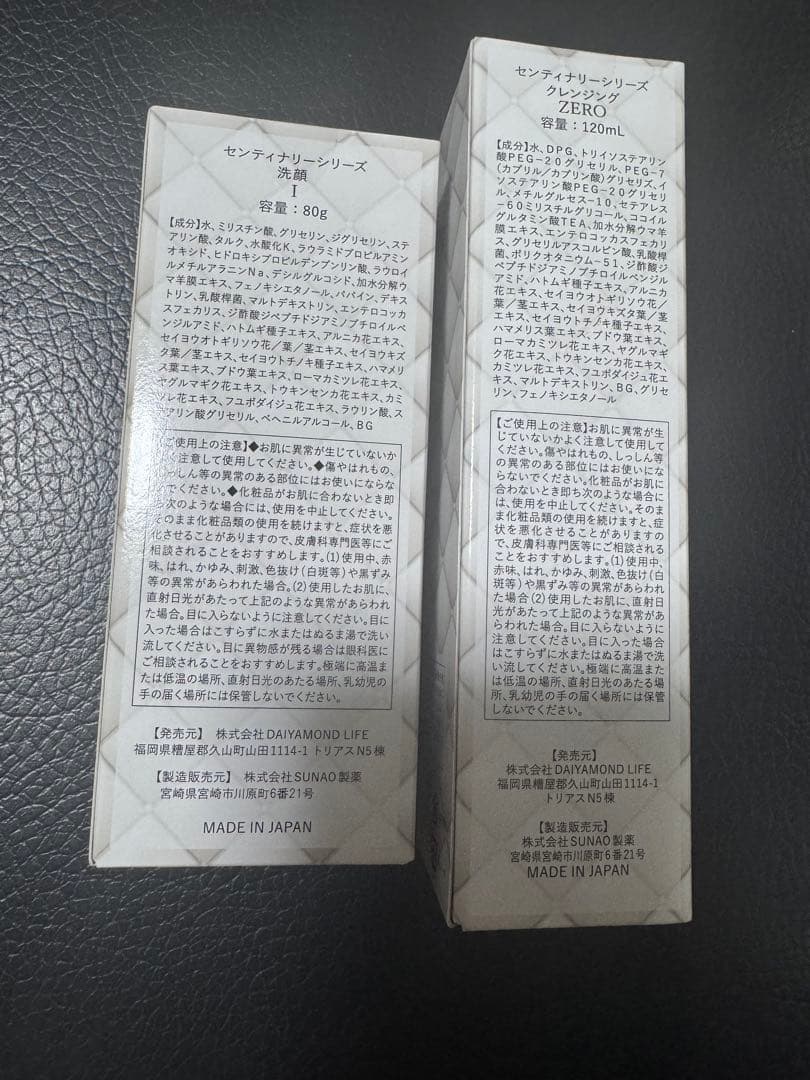 センティナリーシリーズ
洗顔
I
容量：80g
【成分】水、ミリスチン酸、グリセリン、ジグリセリン、ステ
アリン酸、タルク、水酸化K、ラウラミドプロピルアミン
オキシド、ヒドロキシプロピルデンプンリン酸、ラウロイ
ルメチルアラニンNa、デシルグルコシド、加水分解ウ
マ羊膜エキス、フェノキシエタノール、パパイン、デキス
トリン、乳酸桿菌、マルトデキストリン、エンテロコッカ
スフェカリス、ジ酢酸ジペプチドジアミノブチロイルベ
ンジルアミド、ハトムギ種子エキス、アルニカ花エキス、
セイヨウオトギリソウ花／葉／茎エキス、セイヨウキズ
タ葉／茎エキス、セイヨウトチノキ種子エキス、ハマメリ
ス葉エキス、ブドウ葉エキス、ローマカミツレ花エキス、
ヤグルマギク花エキス、トウキンセンカ花エキス、カミ
ツレ花エキス、フユボダイジュ花エキス、ラウリン酸、ス
テアリン酸グリセリル、ベヘニルアルコール、BG
【ご使用上の注意】◆お肌に異常が生じていないか
よく注意して使用してください。◆傷やはれもの、
しっしん等の異常のある部位にはお使いにならな
いでください。◆化粧品がお肌に合わないとき即
ち次のような場合には、使用を中止してください。
そのまま化粧品類の使用を続けますと、症状を悪
化させることがありますので、皮膚科専門医等にご
相談されることをおすすめします。(1)使用中、赤
味、はれ、かゆみ、刺激、色抜け(白斑等)や黒ずみ
等の異常があらわれた場合。(2)使用したお肌に、
直射日光があたって上記のような異常があらわれ
た場合。目に入らないように注意してください。目に
入った場合はこすらずに水またはぬるま湯で洗い
流してください。目に異物感が残る場合は眼科医に
ご相談されることをおすすめします。極端に高温ま
たは低温の場所、直射日光のあたる場所、乳幼児の
手の届く場所には保管しないでください。
【発売元】 株式会社DAIYAMOND LIFE
福岡県糟屋郡久山町山田1114-1 トリアスN5棟
【製造販売元】 株式会社SUNAO製薬
宮崎県宮崎市川原町6番21号
MADE IN JAPAN
センティナリーシリーズ
クレンジング
ZERO
容量：120mL
【成分】水、DPG、トリイソステアリン
酸PEG-20グリセリル、PEG-7
(カプリル/カプリン酸)グリセリズ、イ
ソステアリン酸PEG-20グリセリ
ル、メチルグルセス-10、セテアレス
-60ミリスチルグリコール、ココイル
グルタミン酸TEA、加水分解ウマ羊
膜エキス、エンテロコッカスフェカリ
ス、グリセリルアスコルビン酸、乳酸桿
菌、ポリクオタニウム-51、ジ酢酸ジ
ペプチドジアミノブチロイルベンジル
アミド、ハトムギ種子エキス、アルニカ
花エキス、セイヨウオトギリソウ花／
葉／茎エキス、セイヨウキズタ葉／茎
エキス、セイヨウトチノキ種子エキス、
ハマメリス葉エキス、ブドウ葉エキス、
ローマカミツレ花エキス、ヤグルマギ
ク花エキス、トウキンセンカ花エキス、
カミツレ花エキス、フユボダイジュ花エ
キス、マルトデキストリン、BG、グリセ
リン、フェノキシエタノール
【ご使用上の注意】お肌に異常が生
じていないかよく注意して使用して
ください。傷やはれもの、しっしん等
の異常のある部位にはお使いになら
ないでください。化粧品がお肌に
合わないとき即ち次のような場合に
は、使用を中止してください。そのま
ま化粧品類の使用を続けますと、症
状を悪化させることがありますの
で、皮膚科専門医等にご相談される
ことをおすすめします。(1)使用中、
赤味、はれ、かゆみ、刺激、色抜け(白
斑等)や黒ずみ等の異常があらわれ
た場合(2)使用したお肌に、直射日
光があたって上記のような異常があ
らわれた場合。目に入らないように
注意してください。目に入った場合
はこすらずに水またはぬるま湯で洗
い流してください。極端に高温また
は低温の場所、直射日光のあたる場
所、乳幼児の手の届く場所には保管
しないでください。
【発売元】
株式会社DAIYAMOND LIFE
福岡県糟屋郡久山町山田1114-1
トリアスN5棟
【製造販売元】
株式会社SUNAO製薬
宮崎県宮崎市川原町6番21号
MADE IN JAPAN